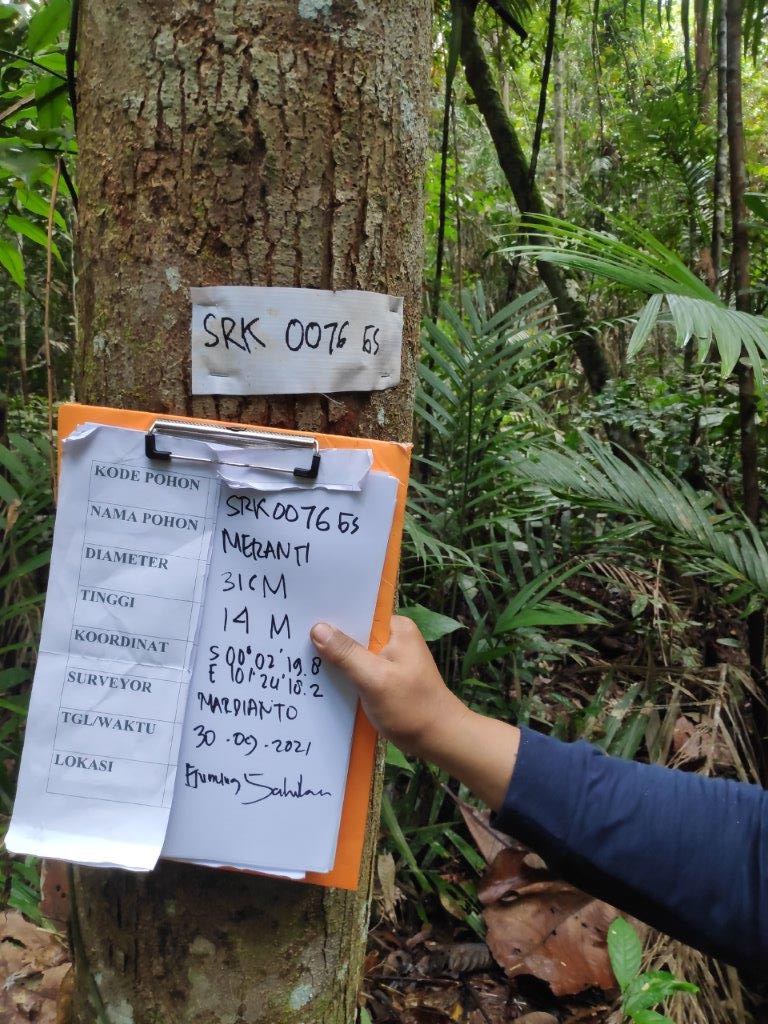 SRK 0076 GS
KODE POHON SRK 0076 GS
NAMA POHON MERANTI
DIAMETER 31 CM
TINGGI 14 M
KOORDINAT S 00°02'19.8
E 101°24'18.2
SURVEYOR MARDIANTO
TGL/WAKTU 30-09-2021
LOKASI Gunung Sahilan